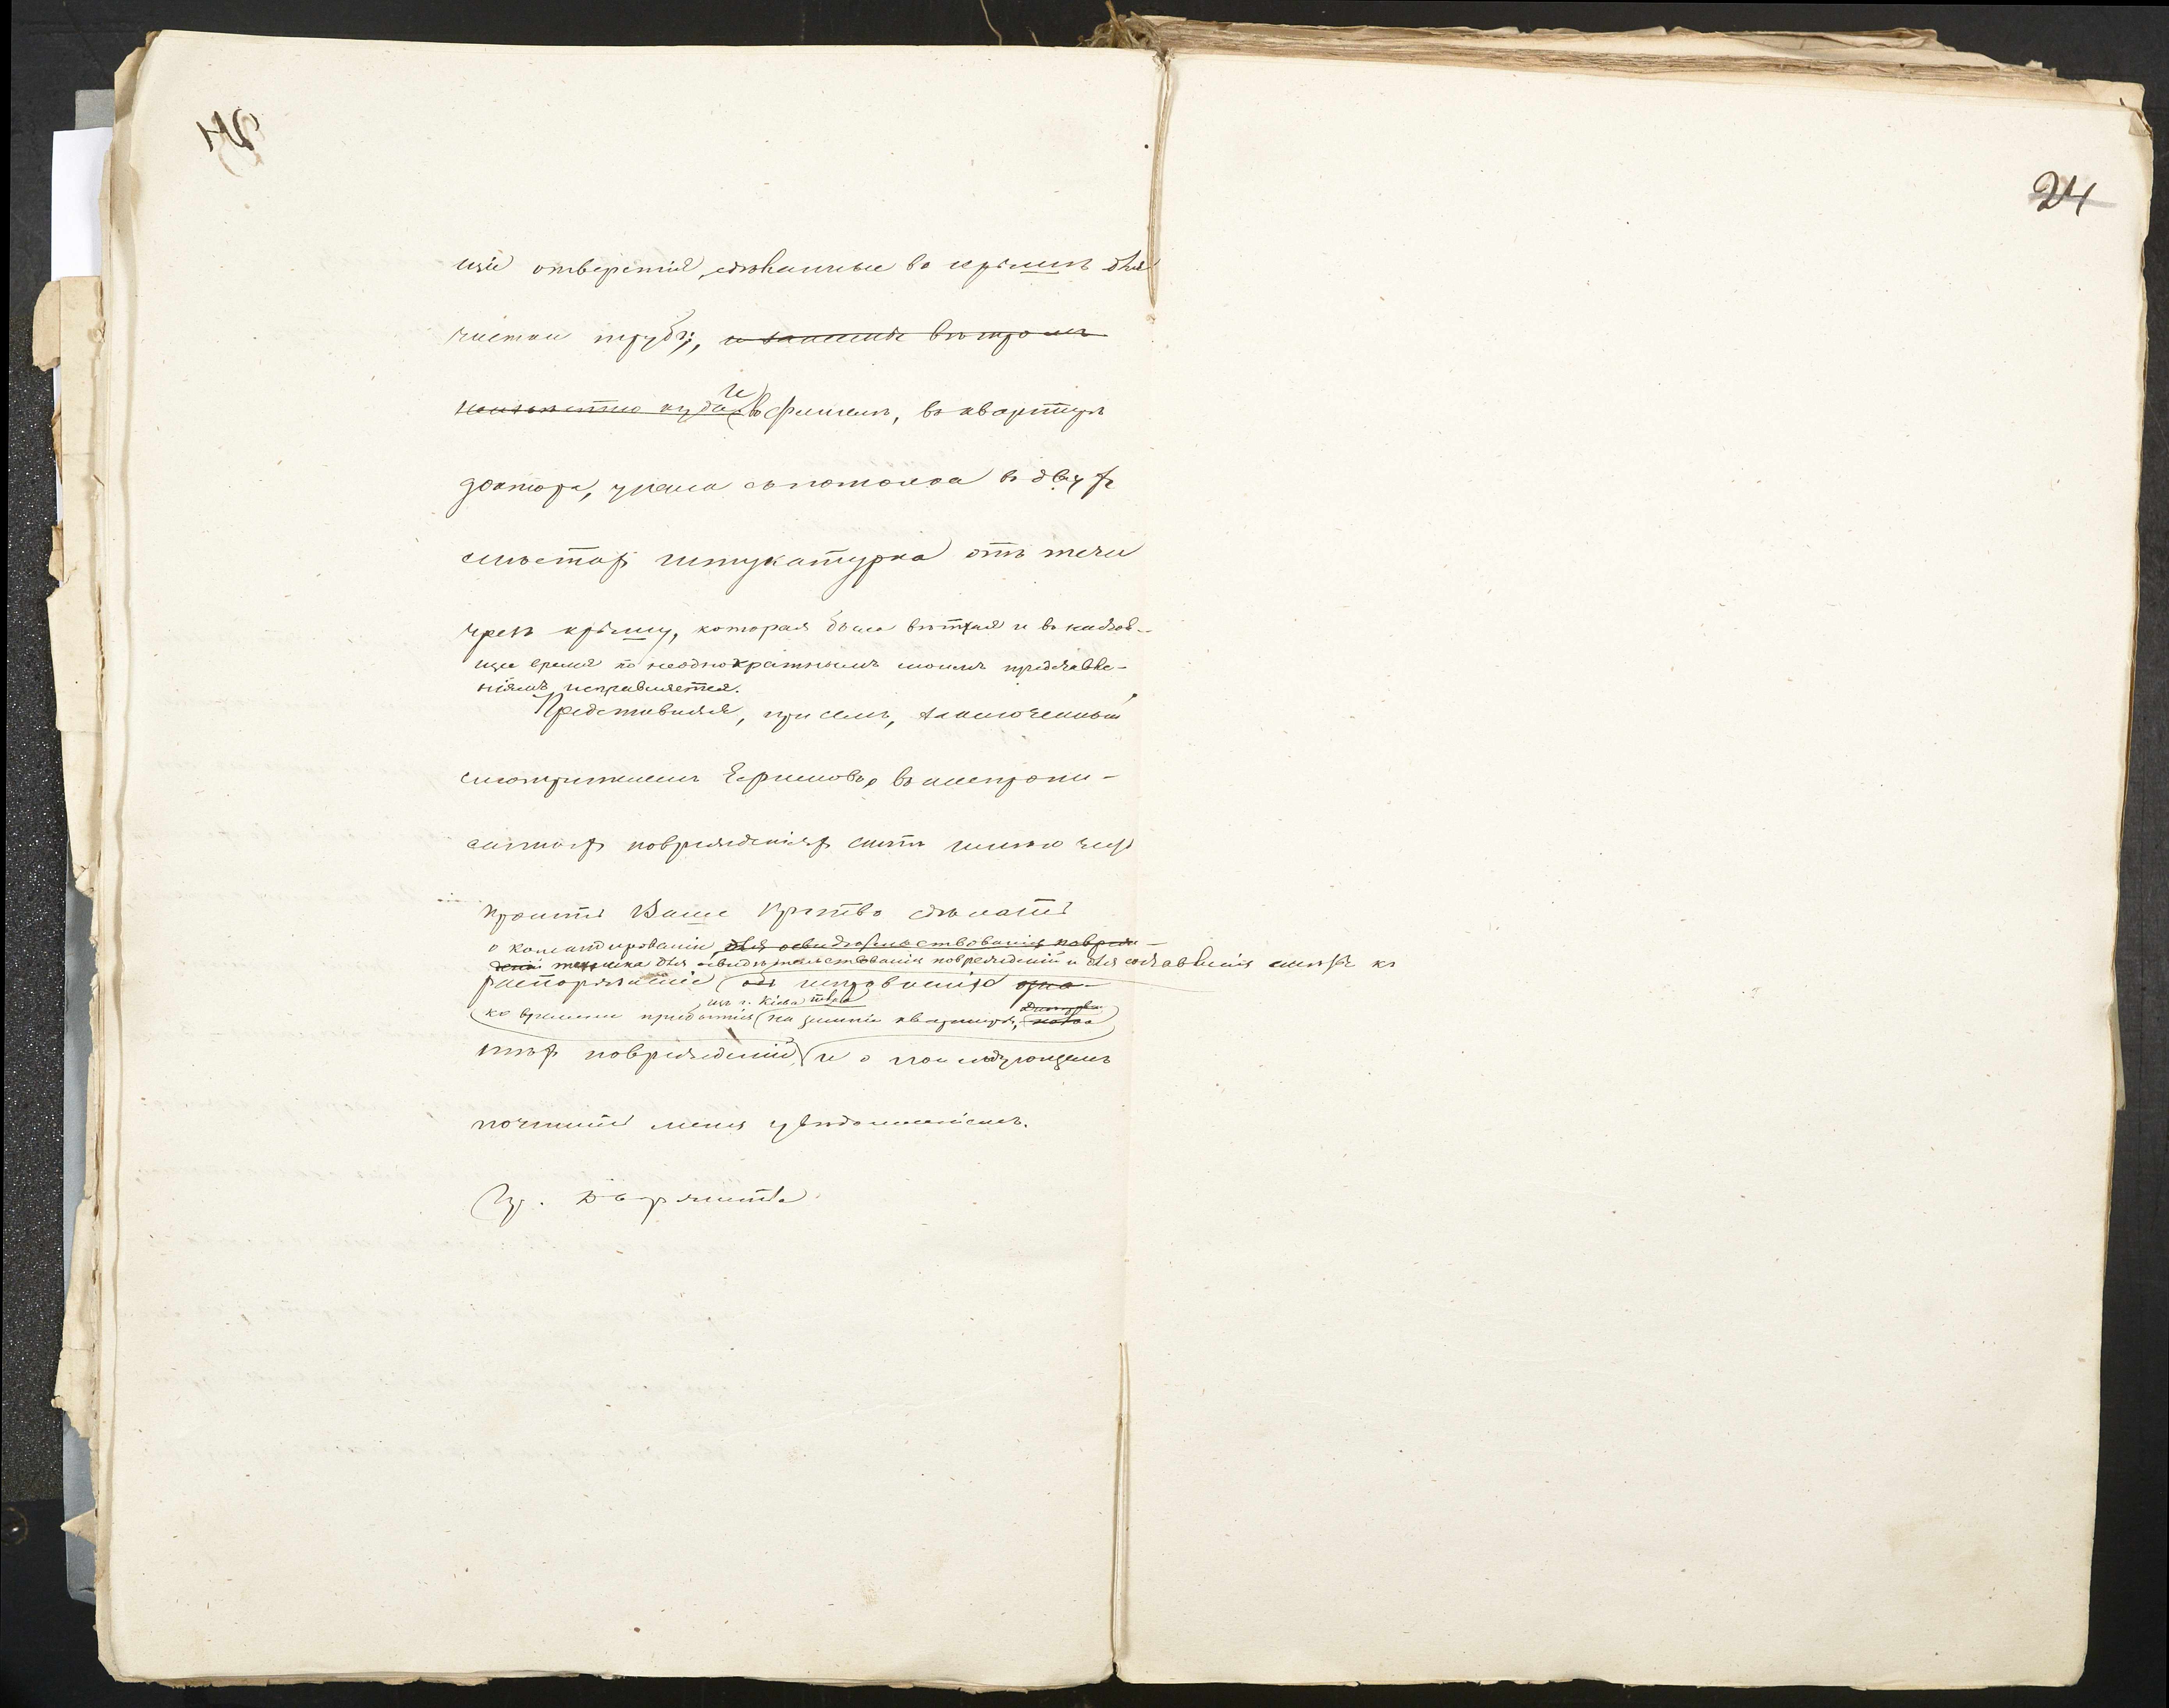 24
щіе отверстія, сдѣланные въ крышѣ для
чистки трубъ; и занесли вѣтромъ
неизвѣстно куда и въ флигелѣ, въ квартирѣ
доктора, упала съ потолка въ двухъ
мѣстахъ штукатурка отъ течи
чрезъ крышу, которая была ветхая и въ настоя-
щее время по неоднократнымъ моимъ представле-
ніямъ исправляется.
Представляя, при семъ, заключенный
смотрителемъ Ефимовъ, о вышепропи-
санныхъ поврежденіяхъ актъ имѣю честь
просить Ваше Пр-ство сдѣлать
о командированіи для освидѣтельствованія повреж-
деній техника для освидѣтельствованія поврежденій и для составленія смѣтъ къ
распоряженіе объ исправленіи
ко времени прибытія изъ г. Кіева на зимнія квартиры,
этихъ поврежденій и о послѣдующемъ
почтить меня увѣдомленіемъ.
24